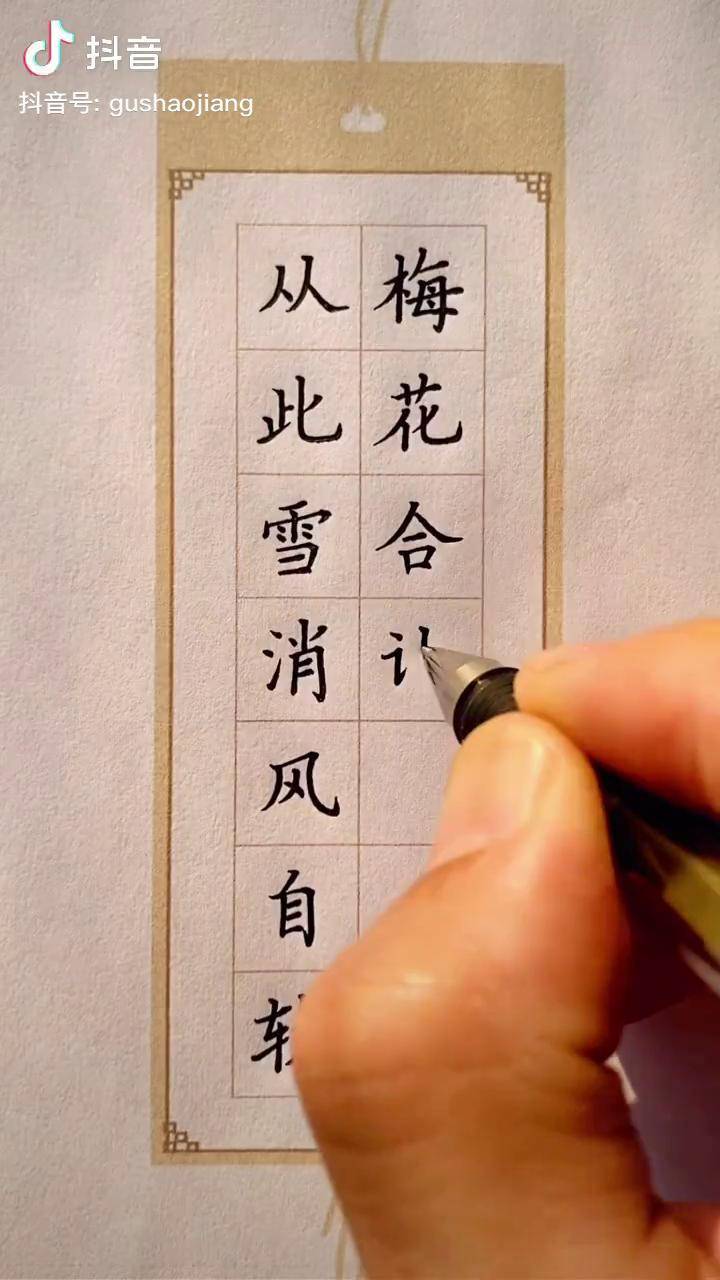 抖音
抖音号: gushaojiang
从此雪消风自
梅花合